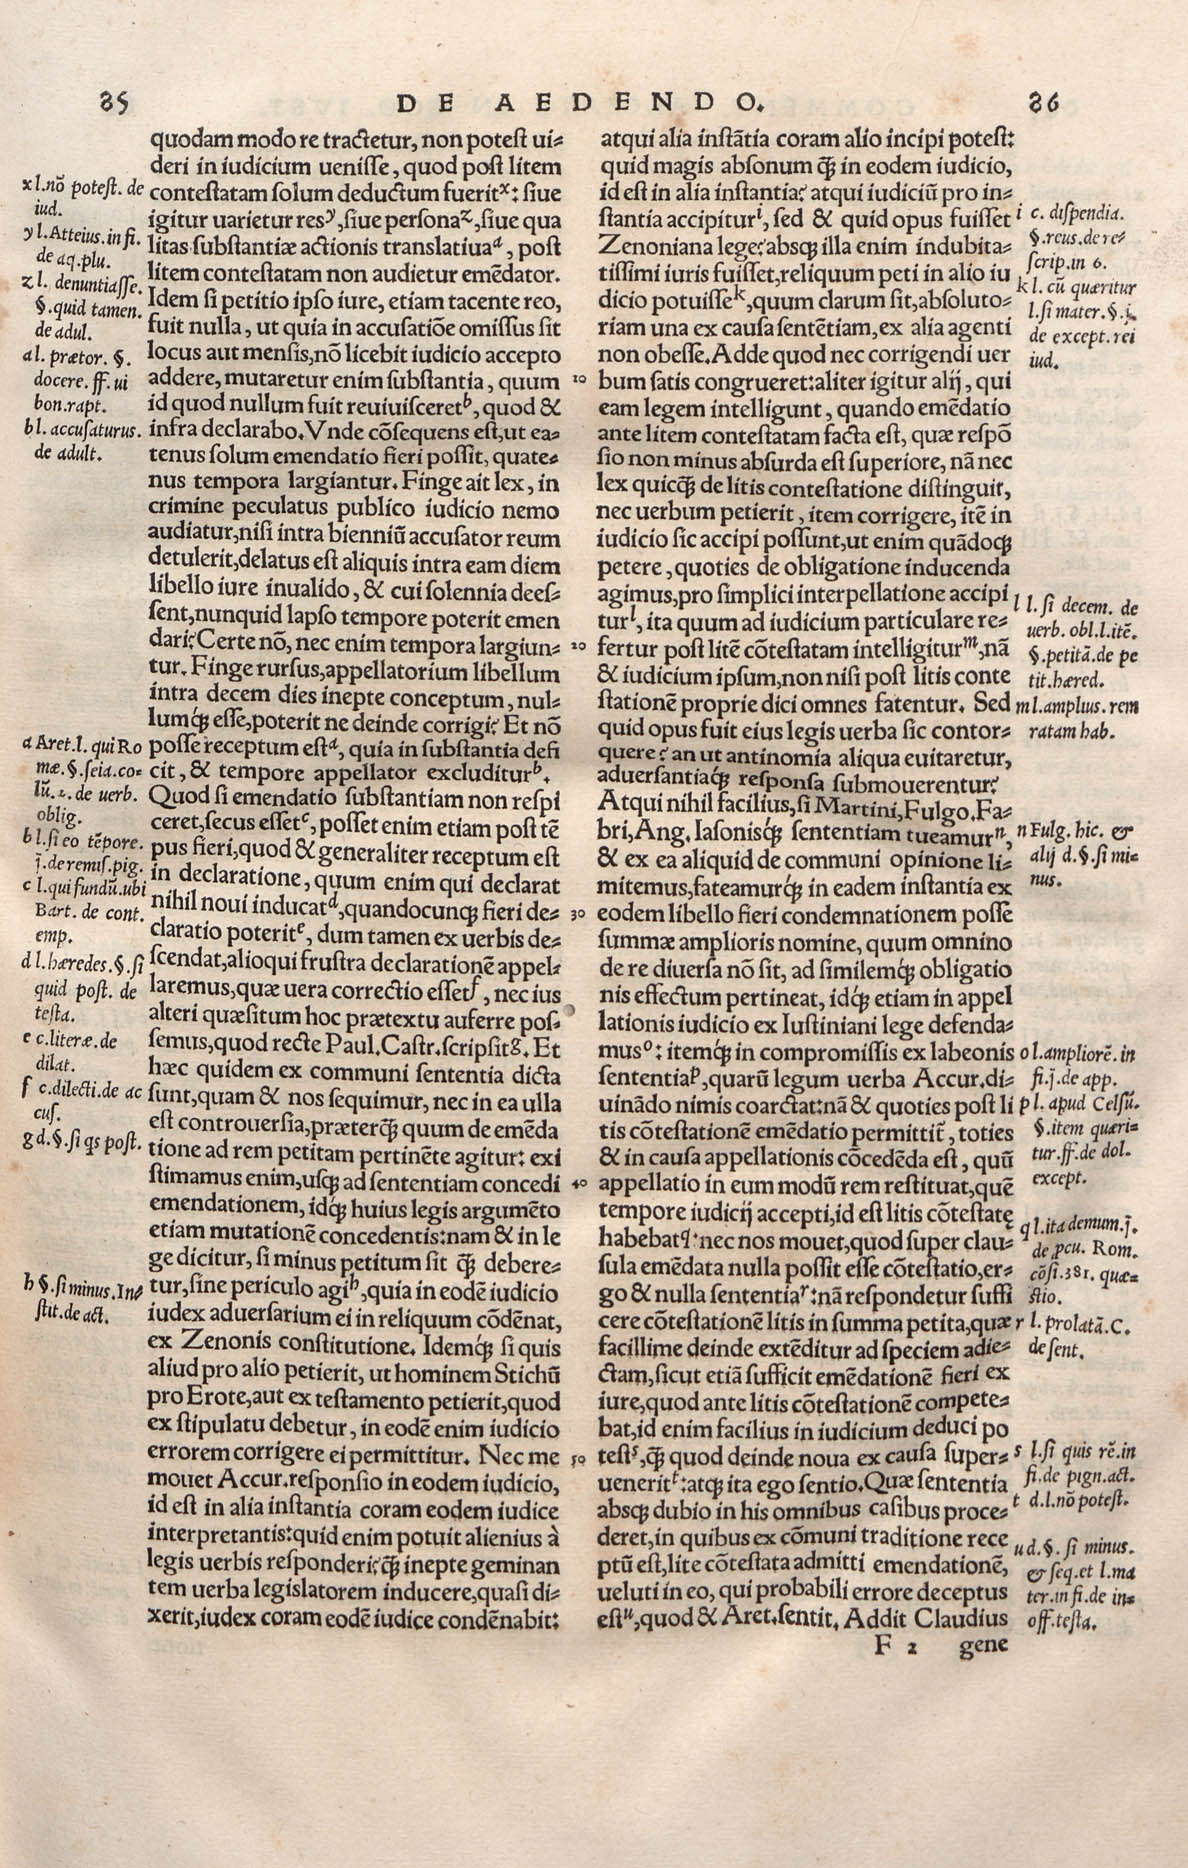 85 DE AEDENDO. 86
quodam modo re tractetur, non potest ui-
deri in iudicium uenisse, quod post litem
contestatam solum deductum fuerit x: siue
igitur uarietur res y, siue persona z, siue qua
litas substantiæ actionis translatiua a, post
litem contestatam non audietur emẽdator.
Idem si petitio ipso iure, etiam tacente reo,
fuit nulla, ut quia in accusatiõe omissus sit
locus aut mensis, nõ licebit iudicio accepto
addere, mutaretur enim substantia, quum
id quod nullum fuit reuiuisceret b, quod &
infra declarabo. Vnde cõsequens est, ut ea-
tenus solum emendatio fieri possit, quate-
nus tempora largiantur. Finge ait lex, in
crimine peculatus publico iudicio nemo
audiatur, nisi intra bienniũ accusator reum
detulerit, delatus est aliquis intra eam diem
libello iure inualido, & cui solennia dees-
sent, nunquid lapso tempore poterit emen
dari? Certe nõ, nec enim tempora largiun-
tur. Finge rursus, appellatorium libellum
intra decem dies inepte conceptum, nul-
lumq́ꝫ esse, poterit ne deinde corrigi? Et nõ
posse receptum est a, quia in substantia defi
cit, & tempore appellator excluditur b.
Quod si emendatio substantiam non respi
ceret, secus esset c, posset enim etiam post tẽ
pus fieri, quod & generaliter receptum est
in declaratione, quum enim qui declarat
nihil noui inducat d, quandocunqꝫ fieri de-
claratio poterit e, dum tamen ex uerbis de-
scendat, alioqui frustra declarationẽ appel-
laremus, quæ uera correctio esset f, nec ius
alteri quæsitum hoc prætextu auferre pos-
semus, quod recte Paul. Castr. scripsit g. Et
hæc quidem ex communi sententia dicta
sunt, quam & nos sequimur, nec in ea ulla
est controuersia, præterq̃ꝫ quum de emẽda
tione ad rem petitam pertinẽte agitur: exi
stimamus enim, usqꝫ ad sententiam concedi
emendationem, idq́ꝫ huius legis argumẽto
etiam mutationẽ concedentis: nam & in le
ge dicitur, si minus petitum sit q̃ꝫ debere-
tur, sine periculo agi h, quia in eodẽ iudicio
iudex aduersarium ei in reliquum cõdẽnat,
ex Zenonis constitutione. Idemq́ꝫ si quis
aliud pro alio petierit, ut hominem Stichũ
pro Erote, aut ex testamento petierit, quod
ex stipulatu debetur, in eodẽ enim iudicio
errorem corrigere ei permittitur. Nec me
mouet Accur. responsio in eodem iudicio,
id est in alia instantia coram eodem iudice
interpretantis: quid enim potuit alienius à
legis uerbis responderi? q̃ꝫ inepte geminan
tem uerba legislatorem inducere, quasi di-
xerit, iudex coram eodẽ iudice condẽnabit:
x l. nõ potest. de
iud.
y l. Atteius. in fi.
de aq. plu.
z l. denuntiasse.
§. quid tamen.
de adul.
a l. prætor. §.
docere. ff. ui
bon. rapt.
b l. accusaturus.
de adult.
a Aret. l. qui Ro
mæ. §. seia. co-
lũ. 2. de uerb.
oblig.
b l. si eo tẽpore.
j̃. de remis. pig.
c l. qui fundũ. ubi
Bart. de cont.
emp.
d l. hæredes. §. si
quid post. de
testa.
e c. literæ. de
dilat.
f c. dilecti. de ac
cus.
g d. §. si qs post.
h §. si minus. In-
stit. de act.
10
20
30
40
50
atqui alia instãtia coram alio incipi potest:
quid magis absonum q̃ꝫ in eodem iudicio,
id est in alia instantia? atqui iudiciũ pro in-
stantia accipitur i, sed & quid opus fuisset
Zenoniana lege? absqꝫ illa enim indubita-
tissimi iuris fuisset, reliquum peti in alio iu
dicio potuisse k, quum clarum sit, absoluto-
riam una ex causa sentẽtiam, ex alia agenti
non obesse. Adde quod nec corrigendi uer
bum satis congrueret: aliter igitur alij, qui
eam legem intelligunt, quando emẽdatio
ante litem contestatam facta est, quæ respõ
sio non minus absurda est superiore, nã nec
lex quicq̃ꝫ de litis contestatione distinguit,
nec uerbum petierit, item corrigere, itẽ in
iudicio sic accipi possunt, ut enim quãdoqꝫ
petere, quoties de obligatione inducenda
agimus, pro simplici interpellatione accipi
tur l, ita quum ad iudicium particulare re-
fertur post litẽ cõtestatam intelligitur m, nã
& iudicium ipsum, non nisi post litis conte
stationẽ proprie dici omnes fatentur. Sed
quid opus fuit eius legis uerba sic contor-
quere? an ut antinomia aliqua euitaretur,
aduersantiaq́ꝫ responsa submouerentur?
Atqui nihil facilius, si Martini, Fulgo. Fa-
bri, Ang. Iasonisq́ꝫ sententiam tueamur n,
& ex ea aliquid de communi opinione li-
mitemus, fateamurq́ꝫ in eadem instantia ex
eodem libello fieri condemnationem posse
summæ amplioris nomine, quum omnino
de re diuersa nõ sit, ad similemq́ꝫ obligatio
nis effectum pertineat, idq́ꝫ etiam in appel
lationis iudicio ex Iustiniani lege defenda-
mus o: itemq́ꝫ in compromissis ex labeonis
sententia p, quarũ legum uerba Accur. di-
uinãdo nimis coarctat: nã & quoties post li
tis cõtestationẽ emẽdatio permittit̃, toties
& in causa appellationis cõcedẽda est, quũ
appellatio in eum modũ rem restituat, quẽ
tempore iudicij accepti, id est litis cõtestatę
habebat q: nec nos mouet, quod super clau-
sula emẽdata nulla possit esse cõtestatio, er-
go & nulla sententia r: nã respondetur suffi
cere cõtestationẽ litis in summa petita, quæ
facillime deinde extẽditur ad speciem adie-
ctam, sicut etiã sufficit emẽdationẽ fieri ex
iure, quod ante litis cõtestationẽ compete-
bat, id enim facilius in iudicium deduci po
test s, q̃ꝫ quod deinde noua ex causa super-
uenerit t: atqꝫ ita ego sentio. Quæ sententia
absqꝫ dubio in his omnibus casibus proce-
deret, in quibus ex cõmuni traditione rece
ptũ est, lite cõtestata admitti emendationẽ,
ueluti in eo, qui probabili errore deceptus
est u, quod & Aret. sentit. Addit Claudius
F 2 gene
i c. dispendia.
§. reus. de re-
scrip. in 6.
k l. cũ quæritur
l. si mater. §. j̃.
de except. rei
iud.
l l. si decem. de
uerb. obl. l. itẽ.
§. petitã. de pe
tit. hæred.
m l. amplius. rem
ratam hab.
n Fulg. hic. &
alij d. §. si mi-
nus.
o l. ampliorẽ. in
fi. j̃. de app.
p l. apud Celsũ.
§. item quæri-
tur. ff. de dol.
except.
q l. ita demum. j̃.
de pcu. Rom.
cõsi. 381. quæ-
stio.
r l. prolatã. C.
de sent.
s l. si quis rẽ. in
fi. de pign. act.
t d. l. nõ potest.
u d. §. si minus.
& seq. et l. ma
ter. in fi. de in-
off. testa.